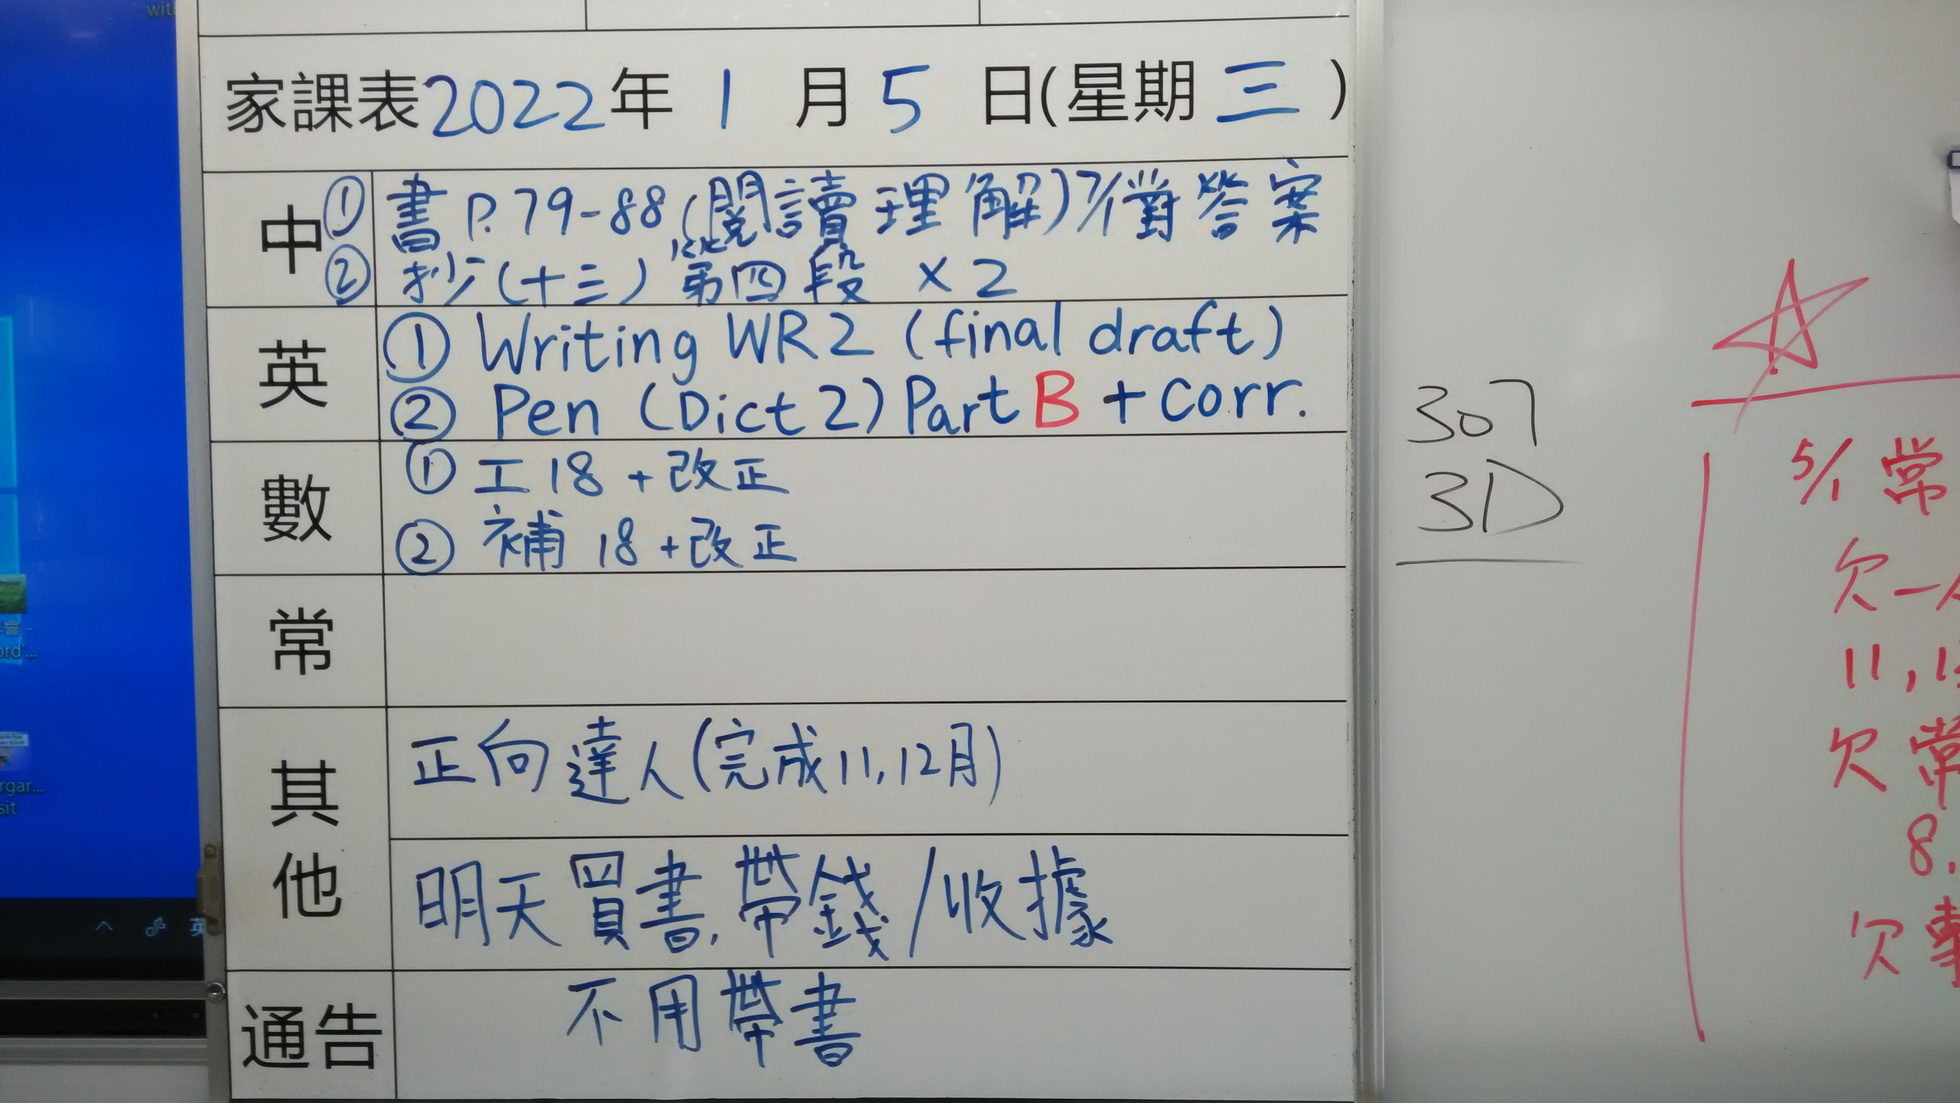 with
家課表2022年 1 月 5 日(星期三)
中 ① 書 P.79-88 (閱讀理解) 7/1對答案
② 抄(十三) 第四段 ×2
英 ① Writing WR2 (final draft)
② Pen (Dict 2) Part B + Corr.
數 ① 工18 + 改正
② 補18 + 改正
常
其他 正向達人(完成11,12月)
明天買書,帶錢/收據
通告 不用帶書
307
3D
5/1 常
欠一
11,
欠常
8.
欠
ord'...
rgar...
sit
英